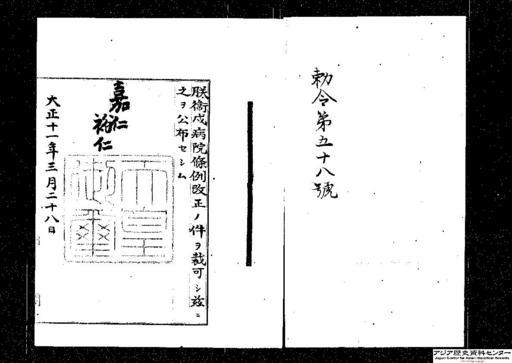 勅令第五十八號
朕衞戍病院條例改正ノ件ヲ裁可シ茲ニ
之ヲ公布セシム
嘉仁
裕仁
天皇御璽
大正十一年三月二十八日
アジア歴史資料センター
Japan Center for Asian Historical Records